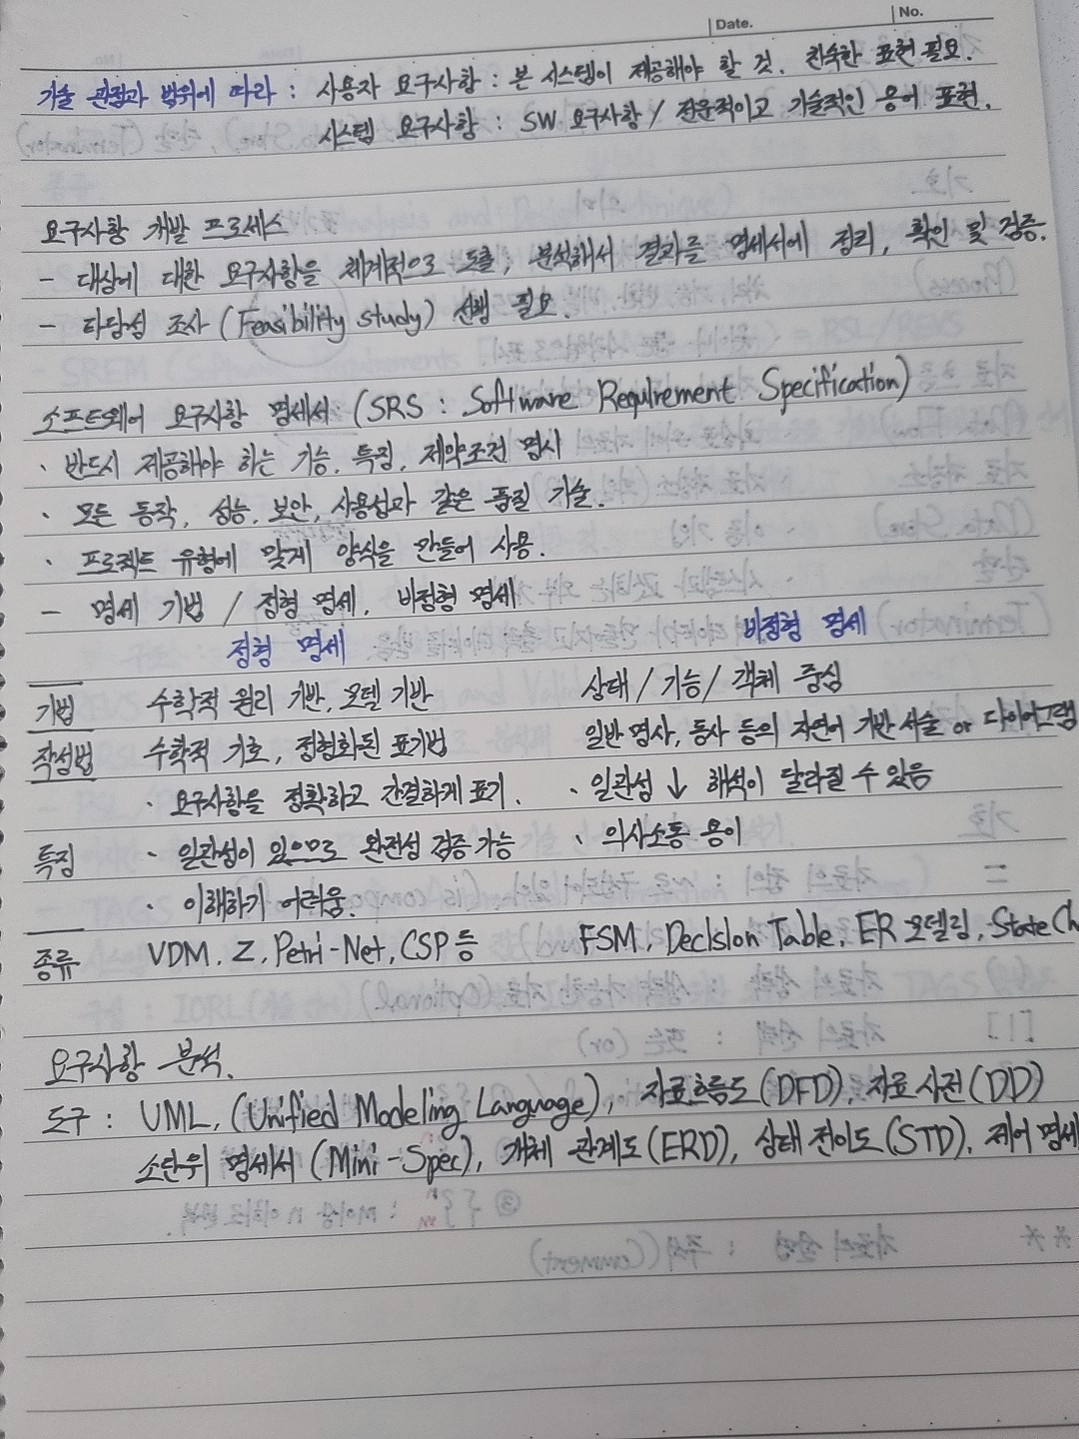 Date.
No.
기술 관점과 범위에 따라 : 사용자 요구사항 : 본 시스템이 제공해야 할 것. 친숙한 표현 필요.
시스템 요구사항 : SW 요구사항 / 전문적이고 기술적인 용어 표현.
요구사항 개발 프로세스
- 대상에 대한 요구사항을 체계적으로 도출, 분석해서 결과를 명세서에 정리, 확인 및 검증.
- 타당성 조사 (Feasibility study) 선행 필요.
소프트웨어 요구사항 명세서 (SRS : Software Requirement Specification)
· 반드시 제공해야 하는 기능. 특징, 제약조건 명시
· 모든 동작, 성능, 보안, 사용성과 같은 품질 기술.
· 프로젝트 유형에 맞게 양식을 만들어 사용.
- 명세 기법 / 정형 명세, 비정형 명세
정형 명세 비정형 명세
기법 수학적 원리 기반, 모델 기반 상태 / 기능 / 객체 중심
작성법 수학적 기호, 정형화된 표기법 일반 명사, 동사 등의 자연어 기반 서술 or 다이어그램
· 요구사항을 정확하고 간결하게 표기. · 일관성 ↓ 해석이 달라질 수 있음
특징 · 일관성이 있으므로 완전성 검증 가능 · 의사소통 용이
· 이해하기 어려움.
종류 VDM, Z, Petri-Net, CSP 등 FSM, Decision Table, ER 모델링, State Ch
요구사항 분석.
도구 : UML, (Unified Modeling Language), 자료흐름도 (DFD), 자료 사전 (DD)
소단위 명세서 (Mini-Spec), 개체 관계도 (ERD), 상태 전이도 (STD), 제어 명세